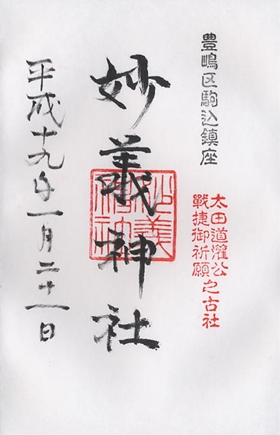 豊嶋区駒込鎮座
太田道灌公
戰捷御祈願之古社
妙義神社
平成十九年一月二十一日